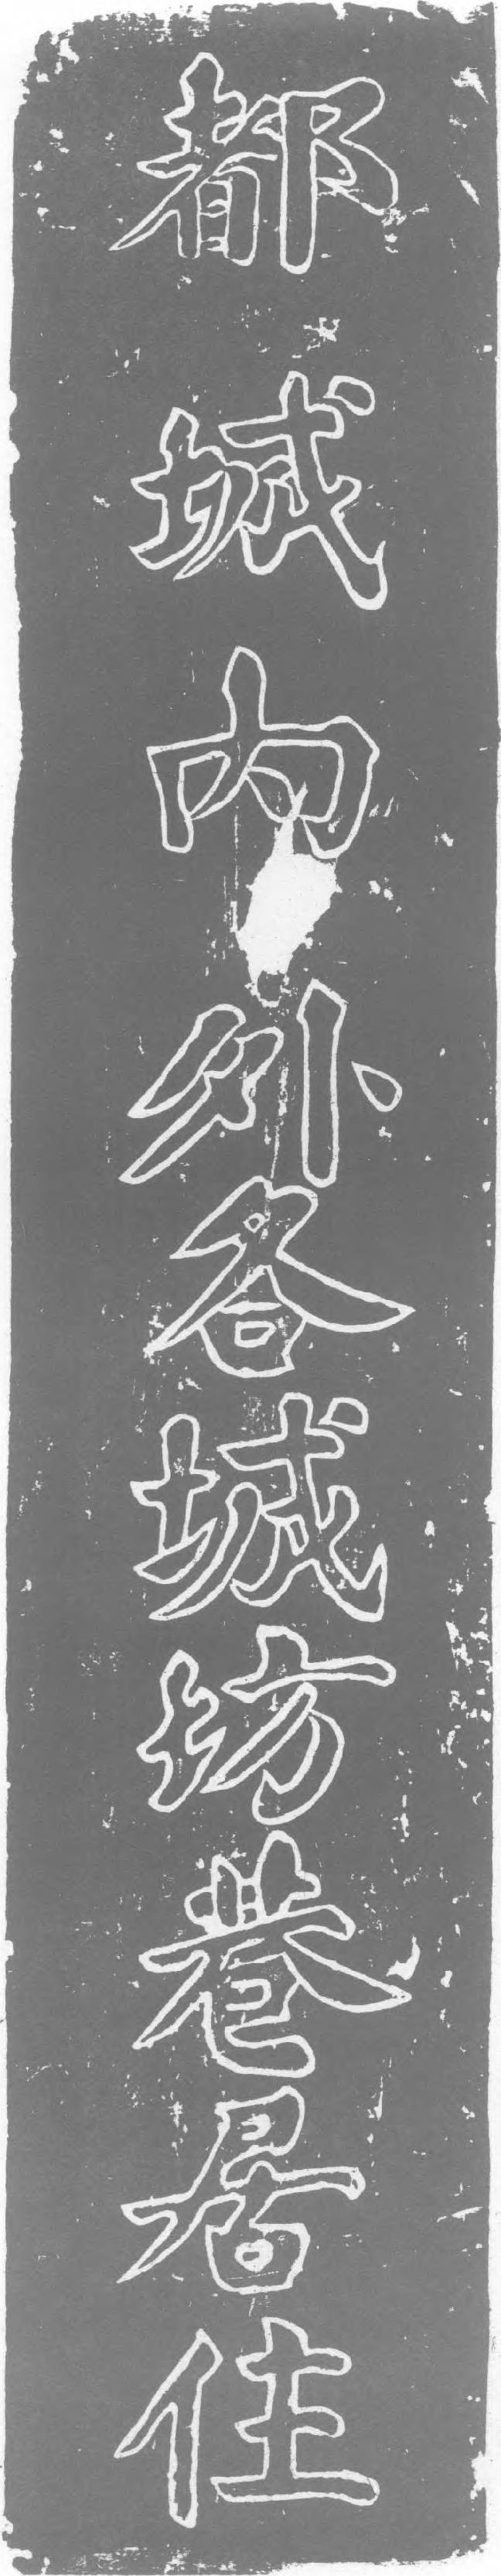 都城内外各城坊巷居住